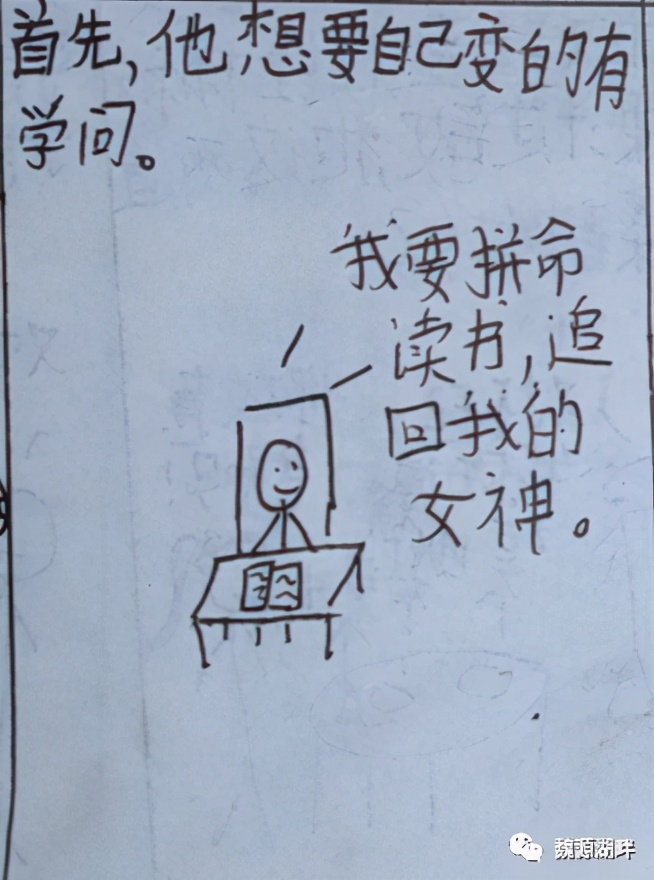 首先,他想要自己变的有
学问。
我要拼命
读书,追
回我的
女神。
魏源湖畔